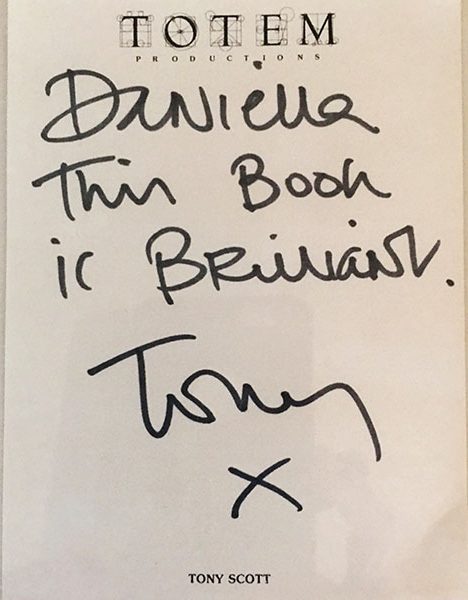 TOTEM
PRODUCTIONS
Daniella
This Book
is Brilliant.
Tony
X
TONY SCOTT